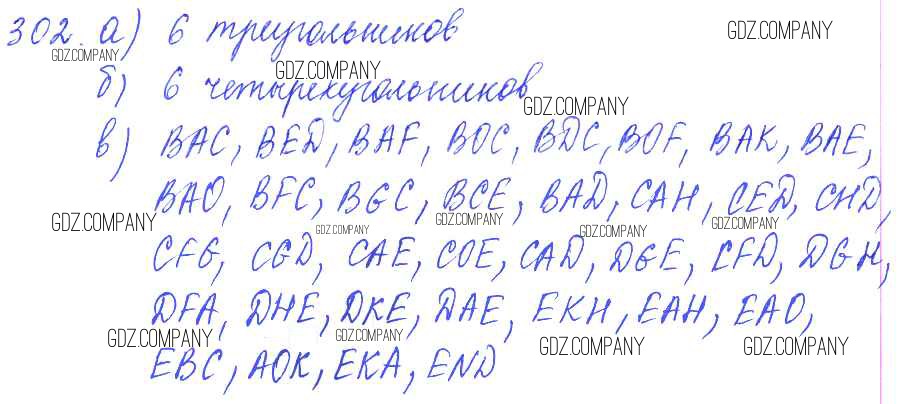 302. а) 6 треугольников
GDZ.COMPANY
GDZ.COMPANY
б) 6 четырехугольников
GDZ.COMPANY
GDZ.COMPANY
в) BAC, BED, BAF, BOC, BDC, BOF, BAK, BAE,
BAO, BFC, BGC, BCE, BAD, CAH, CED, CHD,
GDZ.COMPANY
GDZ.COMPANY
GDZ.COMPANY
GDZ.COMPANY
GDZ.COMPANY
CFG, CGD, CAE, COE, CAD, DGE, CFD, DGH,
DFA, DHE, DKE, DAE, EKH, EAH, EAO,
GDZ.COMPANY
GDZ.COMPANY
GDZ.COMPANY
GDZ.COMPANY
EBC, AOK, EKA, END